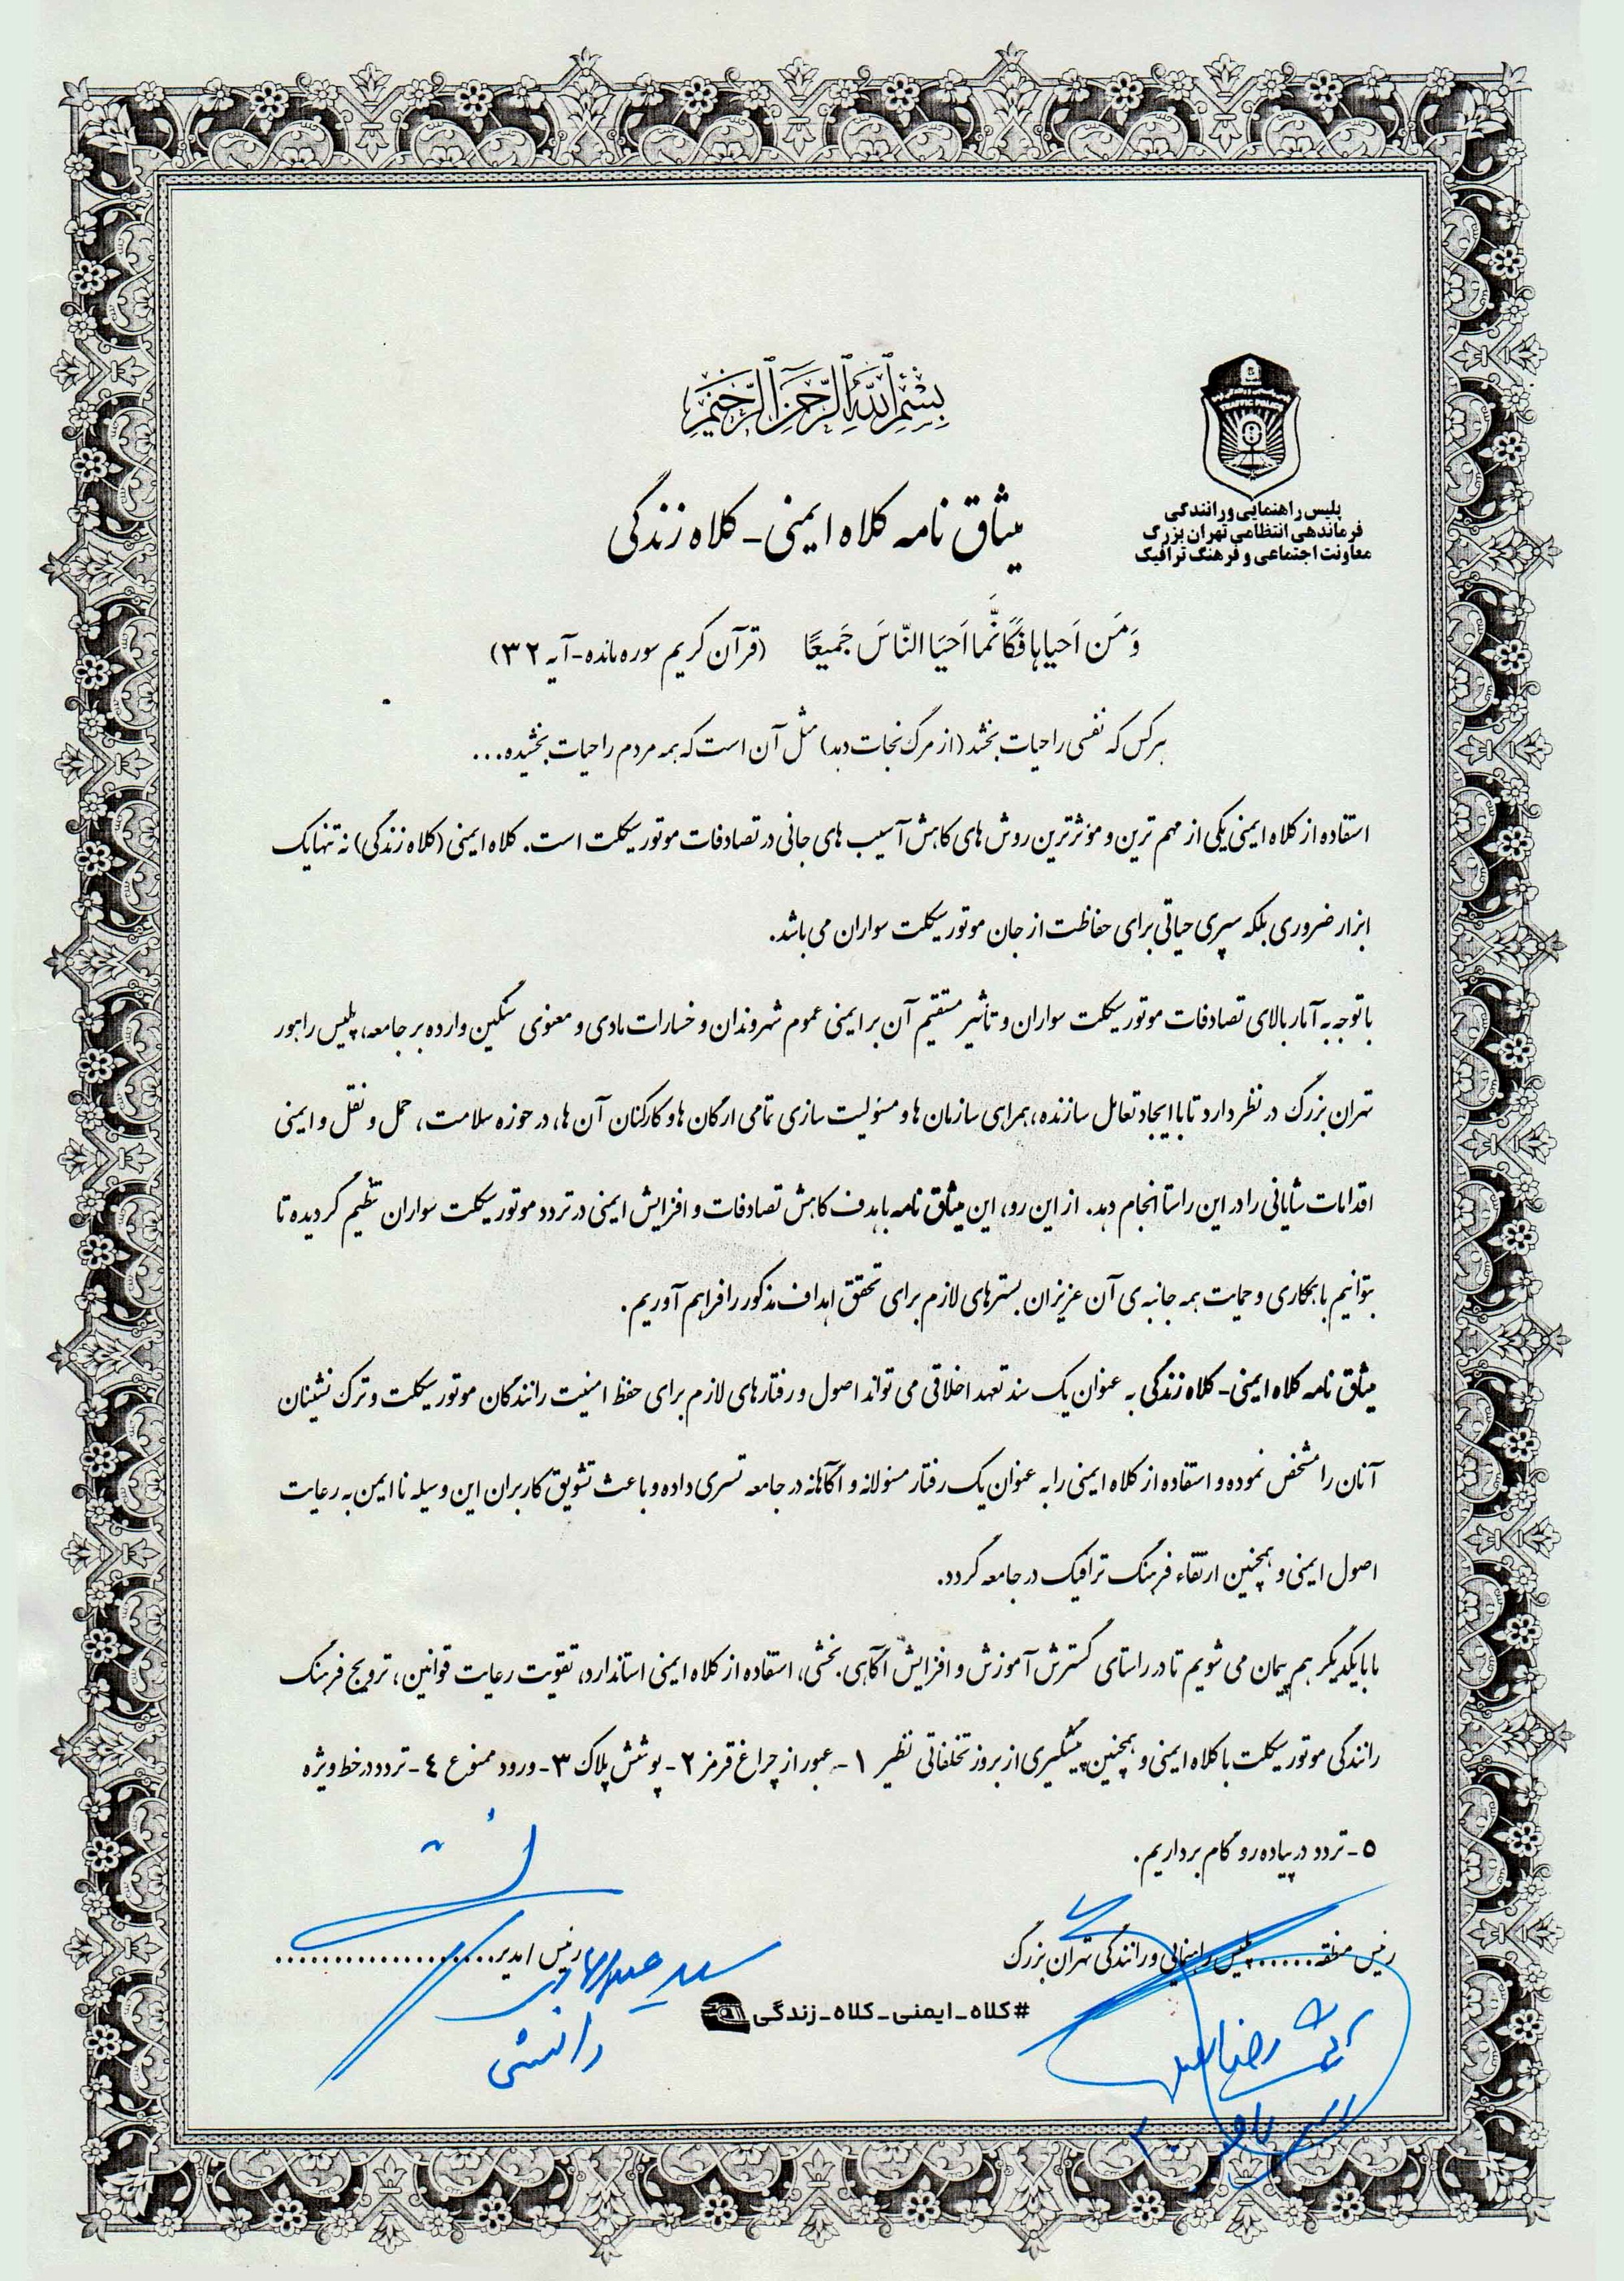 بِسْمِ ٱللَّهِ ٱلرَّحْمَٰنِ ٱلرَّحِيمِ
TRAFFIC POLICE
پلیس راهنمایی و رانندگی
فرماندهی انتظامی تهران بزرگ
معاونت اجتماعی و فرهنگ ترافیک
میثاق نامه کلاه ایمنی - کلاه زندگی
وَمَن اَحیاها فَکَاَنَّما اَحیَا النّاسَ جَمیعًا (قرآن کریم سوره مائده - آیه ۳۲)
هر کس که نفسی را حیات بخشد (از مرگ نجات دهد) مثل آن است که همه مردم را حیات بخشیده...
استفاده از کلاه ایمنی یکی از مهم ترین و مؤثرترین روش های کاهش آسیب های جانی در تصادفات موتورسیکلت است. کلاه ایمنی (کلاه زندگی) نه تنها یک
ابزار ضروری بلکه سپری حیاتی برای حفاظت از جان موتورسیکلت سواران می باشد.
با توجه به آمار بالای تصادفات موتورسیکلت سواران و تأثیر مستقیم آن بر ایمنی عموم شهروندان و خسارات مادی و معنوی سنگین وارده بر جامعه، پلیس راهور
تهران بزرگ در نظر دارد تا با ایجاد تعامل سازنده، همراهی سازمان ها و مسئولیت سازی تمامی ارگان ها و کارکنان آن ها، در حوزه سلامت، حمل و نقل و ایمنی
اقدامات شایانی را در این راستا انجام دهد. از این رو، این میثاق نامه با هدف کاهش تصادفات و افزایش ایمنی در تردد موتورسیکلت سواران تنظیم گردیده تا
بتوانیم با همکاری و حمایت همه جانبه ی آن عزیزان بسترهای لازم برای تحقق اهداف مذکور را فراهم آوریم.
میثاق نامه کلاه ایمنی - کلاه زندگی به عنوان یک سند تعهد اخلاقی می تواند اصول و رفتارهای لازم برای حفظ امنیت رانندگان موتورسیکلت و ترک نشینان
آنان را مشخص نموده و استفاده از کلاه ایمنی را به عنوان یک رفتار مسئولانه و آگاهانه در جامعه تسری داده و باعث تشویق کاربران این وسیله نا ایمن به رعایت
اصول ایمنی و همچنین ارتقاء فرهنگ ترافیک در جامعه گردد.
ما با یکدیگر هم پیمان می شویم تا در راستای گسترش آموزش و افزایش آگاهی بخشی، استفاده از کلاه ایمنی استاندارد، تقویت رعایت قوانین، ترویج فرهنگ
رانندگی موتورسیکلت با کلاه ایمنی و همچنین پیشگیری از بروز تخلفاتی نظیر ۱- عبور از چراغ قرمز ۲- پوشش پلاک ۳- ورود ممنوع ٤- تردد در خط ویژه
٥- تردد در پیاده رو گام برداریم.
رئیس منطقه...... پلیس راهنمایی و رانندگی تهران بزرگ
رئیس / مدیر...................
سید
دانشی
#کلاه_ایمنی_کلاه_زندگی
رضا